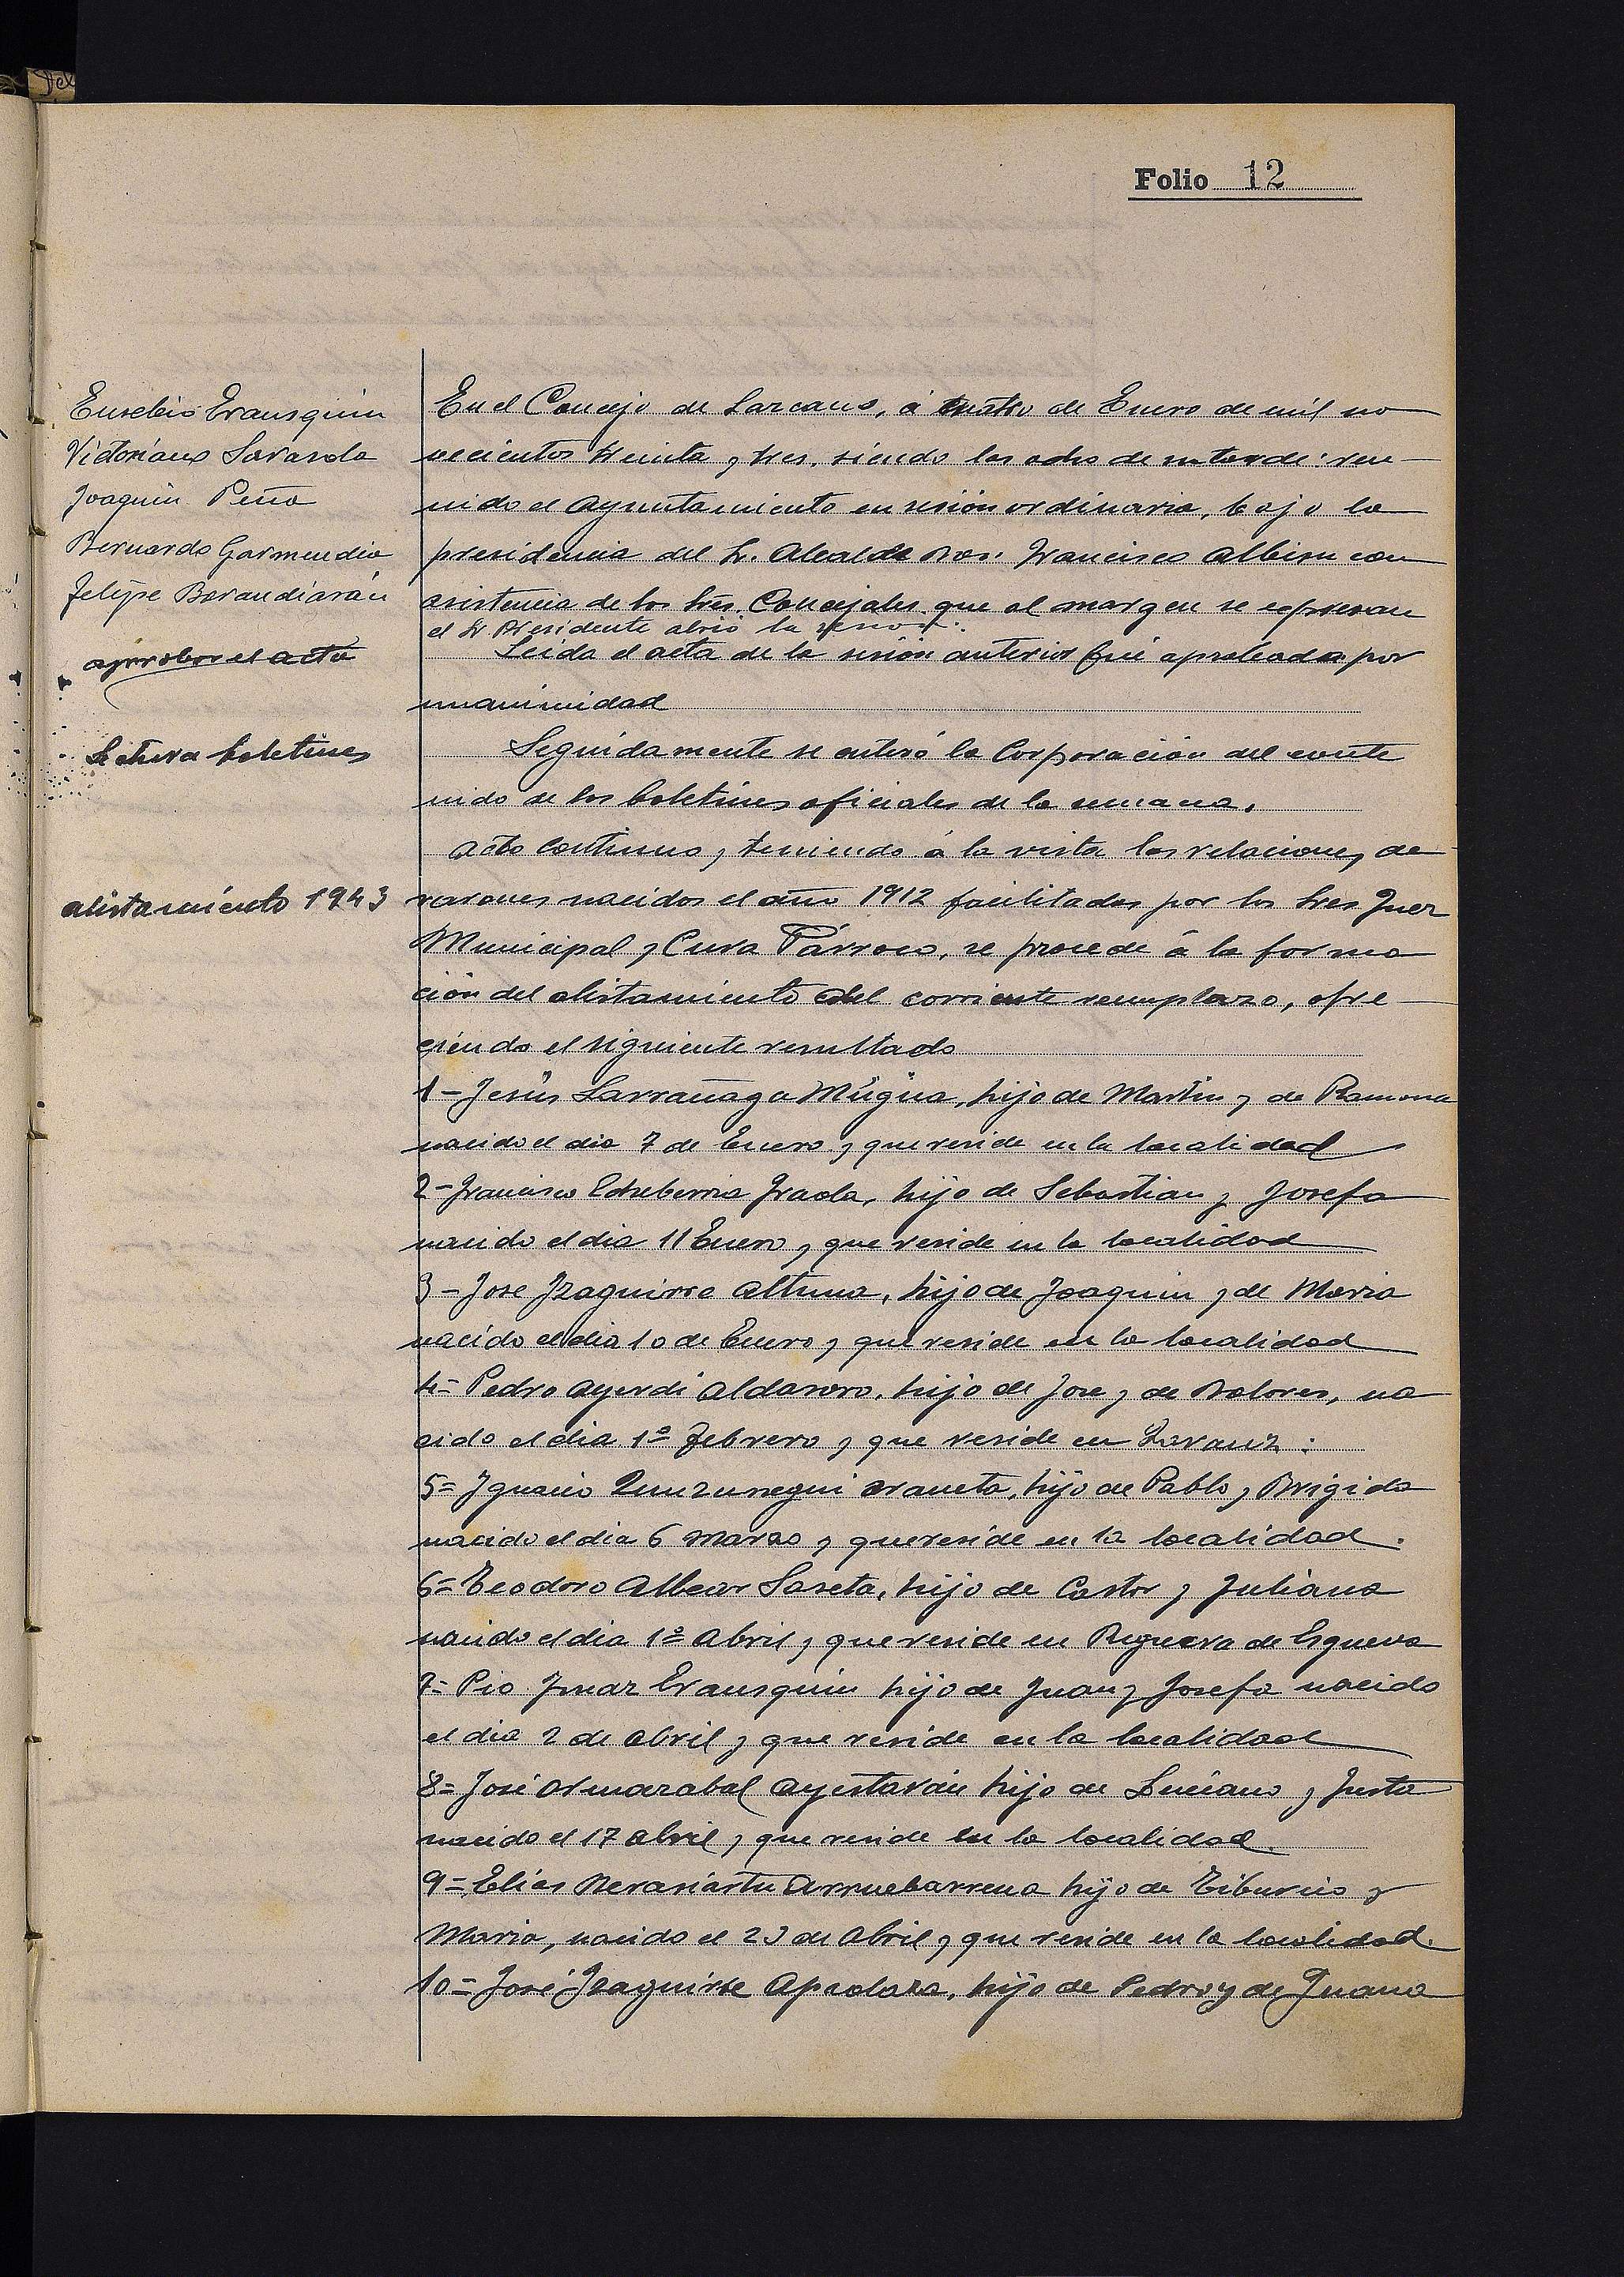 Folio 12
Eusebio Erausquin
Victoriano Sarasola
Joaquin Peña
Bernardo Garmendia
Felipe Barandiarán
aprobar el acta
Lectura boletines
alistamiento 1943
En el Concejo de Lazcano, á cuatro de Enero de mil no
vecientos treinta y tres, siendo las ocho de su tarde: reu-
nido el Ayuntamiento en sesión ordinaria, bajo la
presidencia del Sr. Alcalde Don Francisco Albisu con
asistencia de los Sres. Concejales que al margen se expresan
el Sr Presidente abrió la sesión.
Leida el acta de la sesión anterior fué aprobada por
unanimidad
Seguidamente se enteró la Corporación del conte
nido de los boletines oficiales de la semana.
Acto continuo y teniendo á la vista las relaciones de
varones nacidos el año 1912 facilitadas por los Sres Juez
Municipal y Cura Párroco, se procede á la forma
ción del alistamiento del corriente reemplazo, ofre-
ciendo el siguiente resultado
1- Jesús Larrañaga Múgica, hijo de Martin y de Ramona
nacido el dia 7 de Enero y que reside en la localidad
2- Francisco Echeberria Iraola, hijo de Sebastian y Josefa
nacido el dia 11 Enero y que reside en la localidad
3- Jose Izaguirre Altuna, hijo de Joaquin y de Maria
nacido el dia 10 de Enero y que reside en la localidad
4= Pedro Ayerdi Aldasoro, hijo de Jose y de Dolores, na
cido el dia 1º Febrero y que reside en Zarauz:
5= Ignacio Zunzunegui Araneta, hijo de Pablo y Brigida
nacido el dia 6 Marzo y que reside en la localidad.
6= Teodoro Saseta, hijo de Castor y Juliana
nacido el dia 1º Abril y que reside en de Esgueva
7= Pio Imaz Erausquin hijo de Juan y Josefa nacido
el dia 2 de Abril y que reside en la localidad
8= José Ormazabal Ayestarán hijo de Luciano y Justa
nacido el 17 Abril y que reside en la localidad.
9= Elias Berasiartu Arruebarrena hijo de Tiburcio y
Maria, nacido el 23 de Abril y que reside en la localidad.
10= José Izaguirre Apaolaza, hijo de Pedro y de Juana